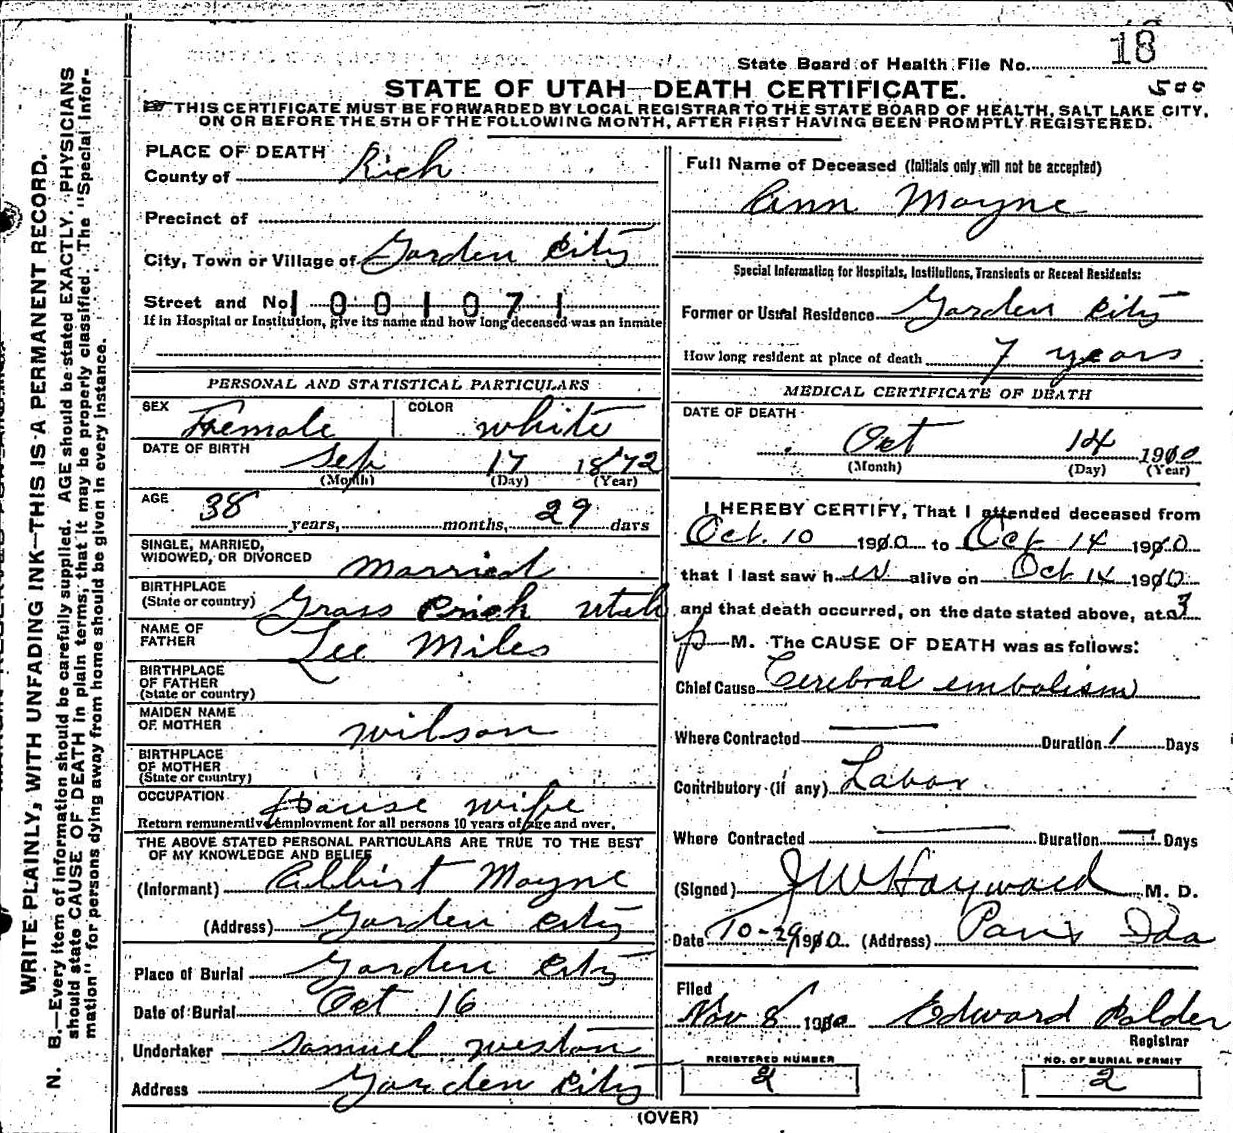 18
State Board of Health File No.
STATE OF UTAH—DEATH CERTIFICATE.
500
THIS CERTIFICATE MUST BE FORWARDED BY LOCAL REGISTRAR TO THE STATE BOARD OF HEALTH, SALT LAKE CITY,
ON OR BEFORE THE 5TH OF THE FOLLOWING MONTH, AFTER FIRST HAVING BEEN PROMPTLY REGISTERED.
WRITE PLAINLY, WITH UNFADING INK—THIS IS A PERMANENT RECORD.
N. B.—Every item of Information should be carefully supplied. AGE should be stated EXACTLY. PHYSICIANS
should state CAUSE OF DEATH in plain terms, that it may be properly classified. The "Special Infor-
mation" for persons dying away from home should be given in every instance.
PLACE OF DEATH
County of Rich
Precinct of
City, Town or Village of Garden City
Street and No. 1001071
If in Hospital or Institution, give its name and how long deceased was an inmate
PERSONAL AND STATISTICAL PARTICULARS
SEX Female COLOR White
DATE OF BIRTH Sep 17 1872
(Month) (Day) (Year)
AGE 38 years, months, 29 days
SINGLE, MARRIED,
WIDOWED, OR DIVORCED Married
BIRTHPLACE
(State or country) Grass Crick Utah
NAME OF
FATHER Lee Miles
BIRTHPLACE
OF FATHER
(State or country)
MAIDEN NAME
OF MOTHER Wilson
BIRTHPLACE
OF MOTHER
(State or country)
OCCUPATION House wife
Return remunerative employment for all persons 10 years of age and over.
THE ABOVE STATED PERSONAL PARTICULARS ARE TRUE TO THE BEST
OF MY KNOWLEDGE AND BELIEF
(Informant) Albirt Mayne
(Address) Garden City
Place of Burial Garden City
Date of Burial Oct 16
Undertaker Samuel Weston
Address Garden City
Full Name of Deceased (Initials only will not be accepted)
Ann Mayne
Special Information for Hospitals, Institutions, Transients or Recent Residents:
Former or Usual Residence Garden City
How long resident at place of death 7 years
MEDICAL CERTIFICATE OF DEATH
DATE OF DEATH
Oct 14 1910
(Month) (Day) (Year)
I HEREBY CERTIFY, That I attended deceased from
Oct. 10 1910 to Oct 14 1910
that I last saw her alive on Oct 14 1910
and that death occurred, on the date stated above, at 3
p M. The CAUSE OF DEATH was as follows:
Chief Cause Cerebral embolism
Where Contracted — Duration 1 Days
Contributory (if any) Labor
Where Contracted — Duration Days
(Signed) J W Hayward M. D.
Date 10-29 1910 (Address) Paris Ida
Filed
Nov 8 1910 Edward Calder
Registrar
REGISTERED NUMBER
2
NO. OF BURIAL PERMIT
2
(OVER)